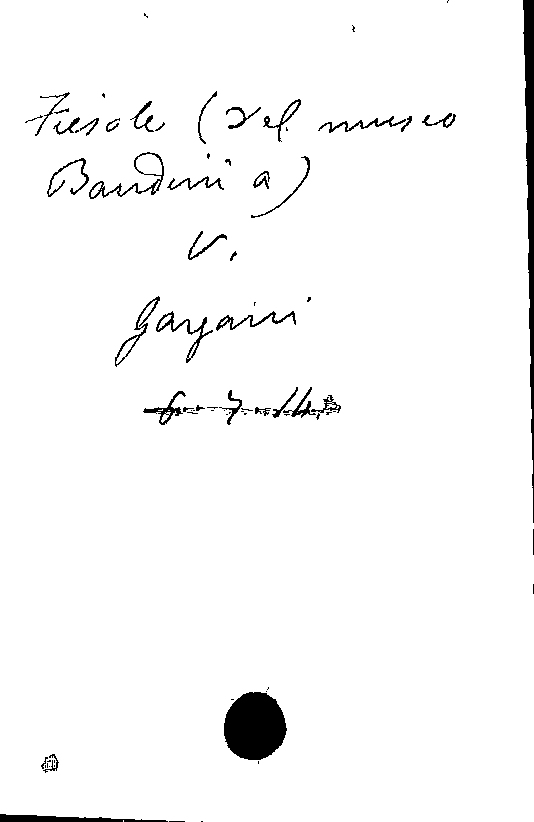 Fiesole (Del museo
Bandini a)
V.
Gargani
6. 7. 14